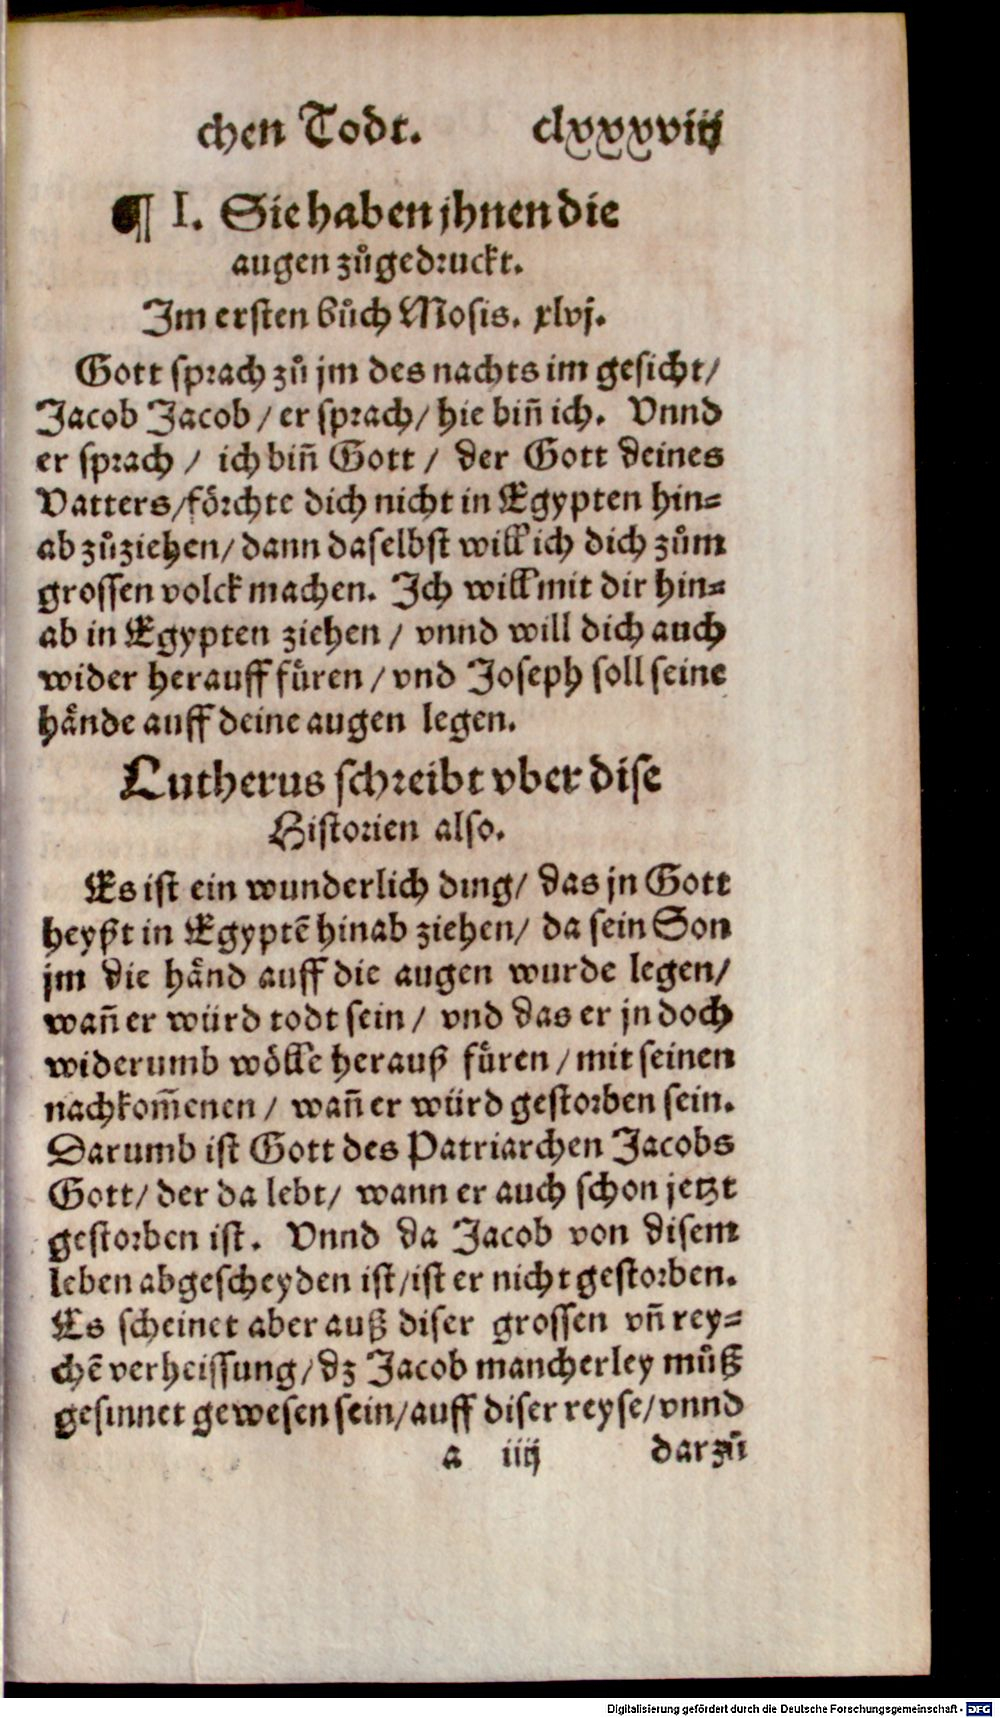 chen Todt. clxxxviij
¶ I. Sie haben jhnen die
augen zůgedruckt.
Im ersten bůch Mosis. xlvj.
Gott sprach zů jm des nachts im gesicht/
Jacob Jacob / er sprach / hie biñ ich. Vnnd
er sprach / ich biñ Gott / der Gott deines
Vatters / foͤrchte dich nicht in Egypten hin=
ab zůziehen / dann daselbst will ich dich zům
grossen volck machen. Ich will mit dir hin=
ab in Egypten ziehen / vnnd will dich auch
wider herauff fuͤren / vnd Joseph soll seine
haͤnde auff deine augen legen.
Lutherus schreibt vber dise
Historien also.
Es ist ein wunderlich ding / das jn Gott
heyßt in Egyptẽ hinab ziehen / da sein Son
jm die haͤnd auff die augen wurde legen /
wañ er würd todt sein / vnd das er jn doch
widerumb woͤlle herauß fuͤren / mit seinen
nachkom̃enen / wañ er würd gestorben sein.
Darumb ist Gott des Patriarchen Jacobs
Gott / der da lebt / wann er auch schon jetzt
gestorben ist. Vnnd da Jacob von disem
leben abgescheyden ist / ist er nicht gestorben.
Es scheinet aber auß diser grossen vñ rey=
chẽ verheissung / dz Jacob mancherley můß
gesinnet gewesen sein / auff diser reyse / vnnd
a iiij darzů
Digitalisierung gefördert durch die Deutsche Forschungsgemeinschaft - DFG